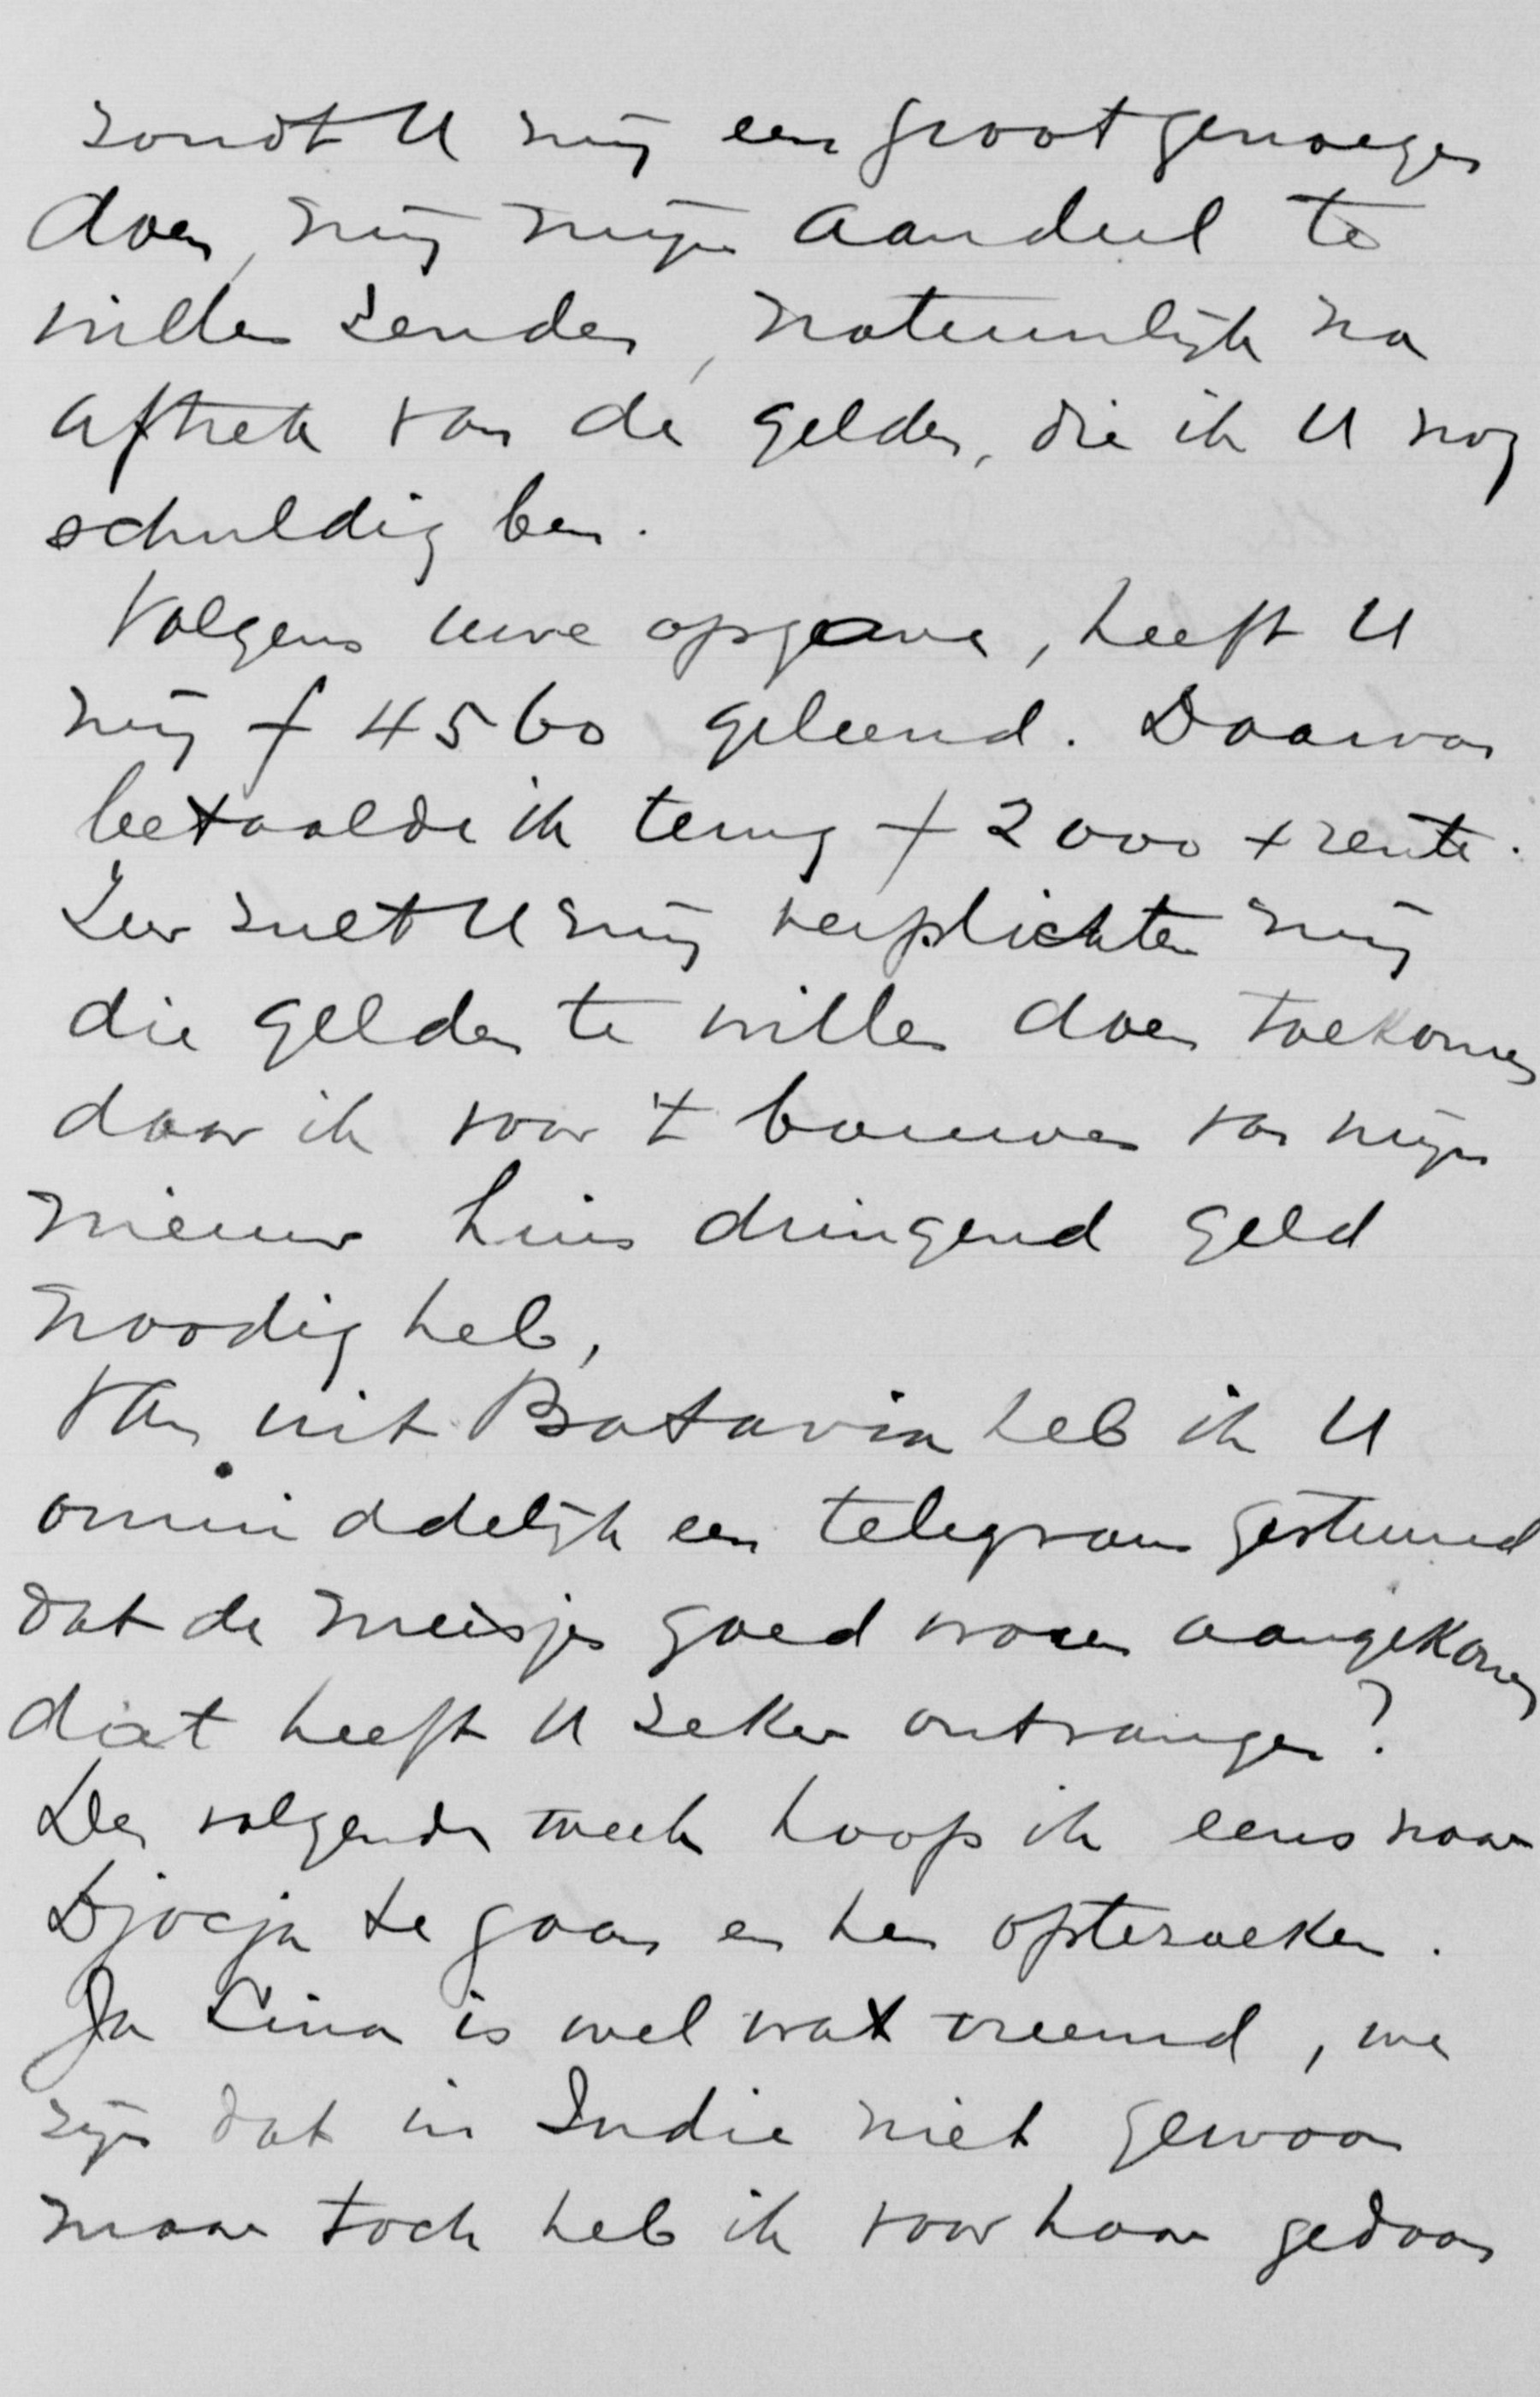 zoudt U mij een groot genoegen
doen, mij mijn aandeel te
willen zenden, natuurlijk na
aftrek van de gelden, die ik U nog
schuldig ben.
Volgens uwe opgave, heeft U
mij f 4560 geleend. Daarvan
betaalde ik terug f 2000 + rente.
Zeer zult U mij verplichten mij
die gelden te willen doen toekomen
daar ik voor 't bouwen van mijn
nieuw huis dringend geld
noodig heb,
Van uit Batavia heb ik U
onmiddelijk een telegram gestuurd
dat de meisjes goed waren aangekomen
dat heeft U zeker ontvangen?
De volgende week hoop ik eens naar
Djocja te gaan en hen optezoeken.
Ja Lina is wel wat vreemd, we
zijn dat in Indie niet gewoon
maar toch heb ik voor haar gedaan